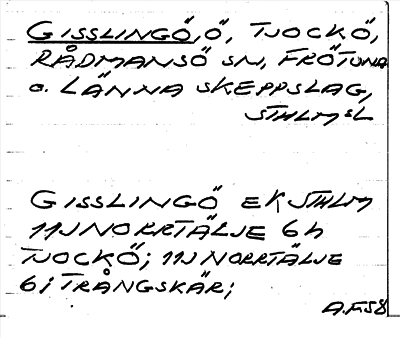 GISSLINGÖ, Ö, TJOCKÖ,
RÅDMANSÖ SN, FRÖTUNA
o. LÄNNA SKEPPSLAG,
STHLMSL
GISSLINGÖ EK STHLM
11J NORRTÄLJE 6h
TJOCKÖ; 11J NORRTÄLJE
6i TRÅNGSKÄR;
A.F.58